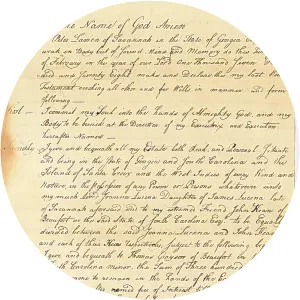 the Name of God Amen
Peter Lavien of Savannah in the State of Georgia
weak in Body but of Sound Mind and Memory do this
of February in the year of our Lord One Thousand Seven
and Seventy Eight make and Declare this my last
Testament revoking all other and for Will in manner and form
following
First I commend my Soul into the hands of Almighty God, and my
Body to be buried at the Discretion of my Executrix and Executors
hereafter Named
I give and bequeath all my Estate both Real, and Personal
and being in the State of Georgia and South Carolina and the
Island of Santa Croix and the West Indies of every Kind and
Nature, in the possession of any Person or Persons whatever unto
my much Lov'd Joanna Lucena Daughter of James Lucena late
of Savannah aforesaid and to my esteemed Friend John Kean of
Beaufort in the said State of South Carolina Esq. To be Equally
divided between the said Joanna Lucena and John Kean
and each of their Heirs respectively, subject to the following
I give and bequeath to Thomas Grayson of Beaufort
South Carolina minor, the Sum of Three hundred
to remain in the hands of the
the named fee of Interest